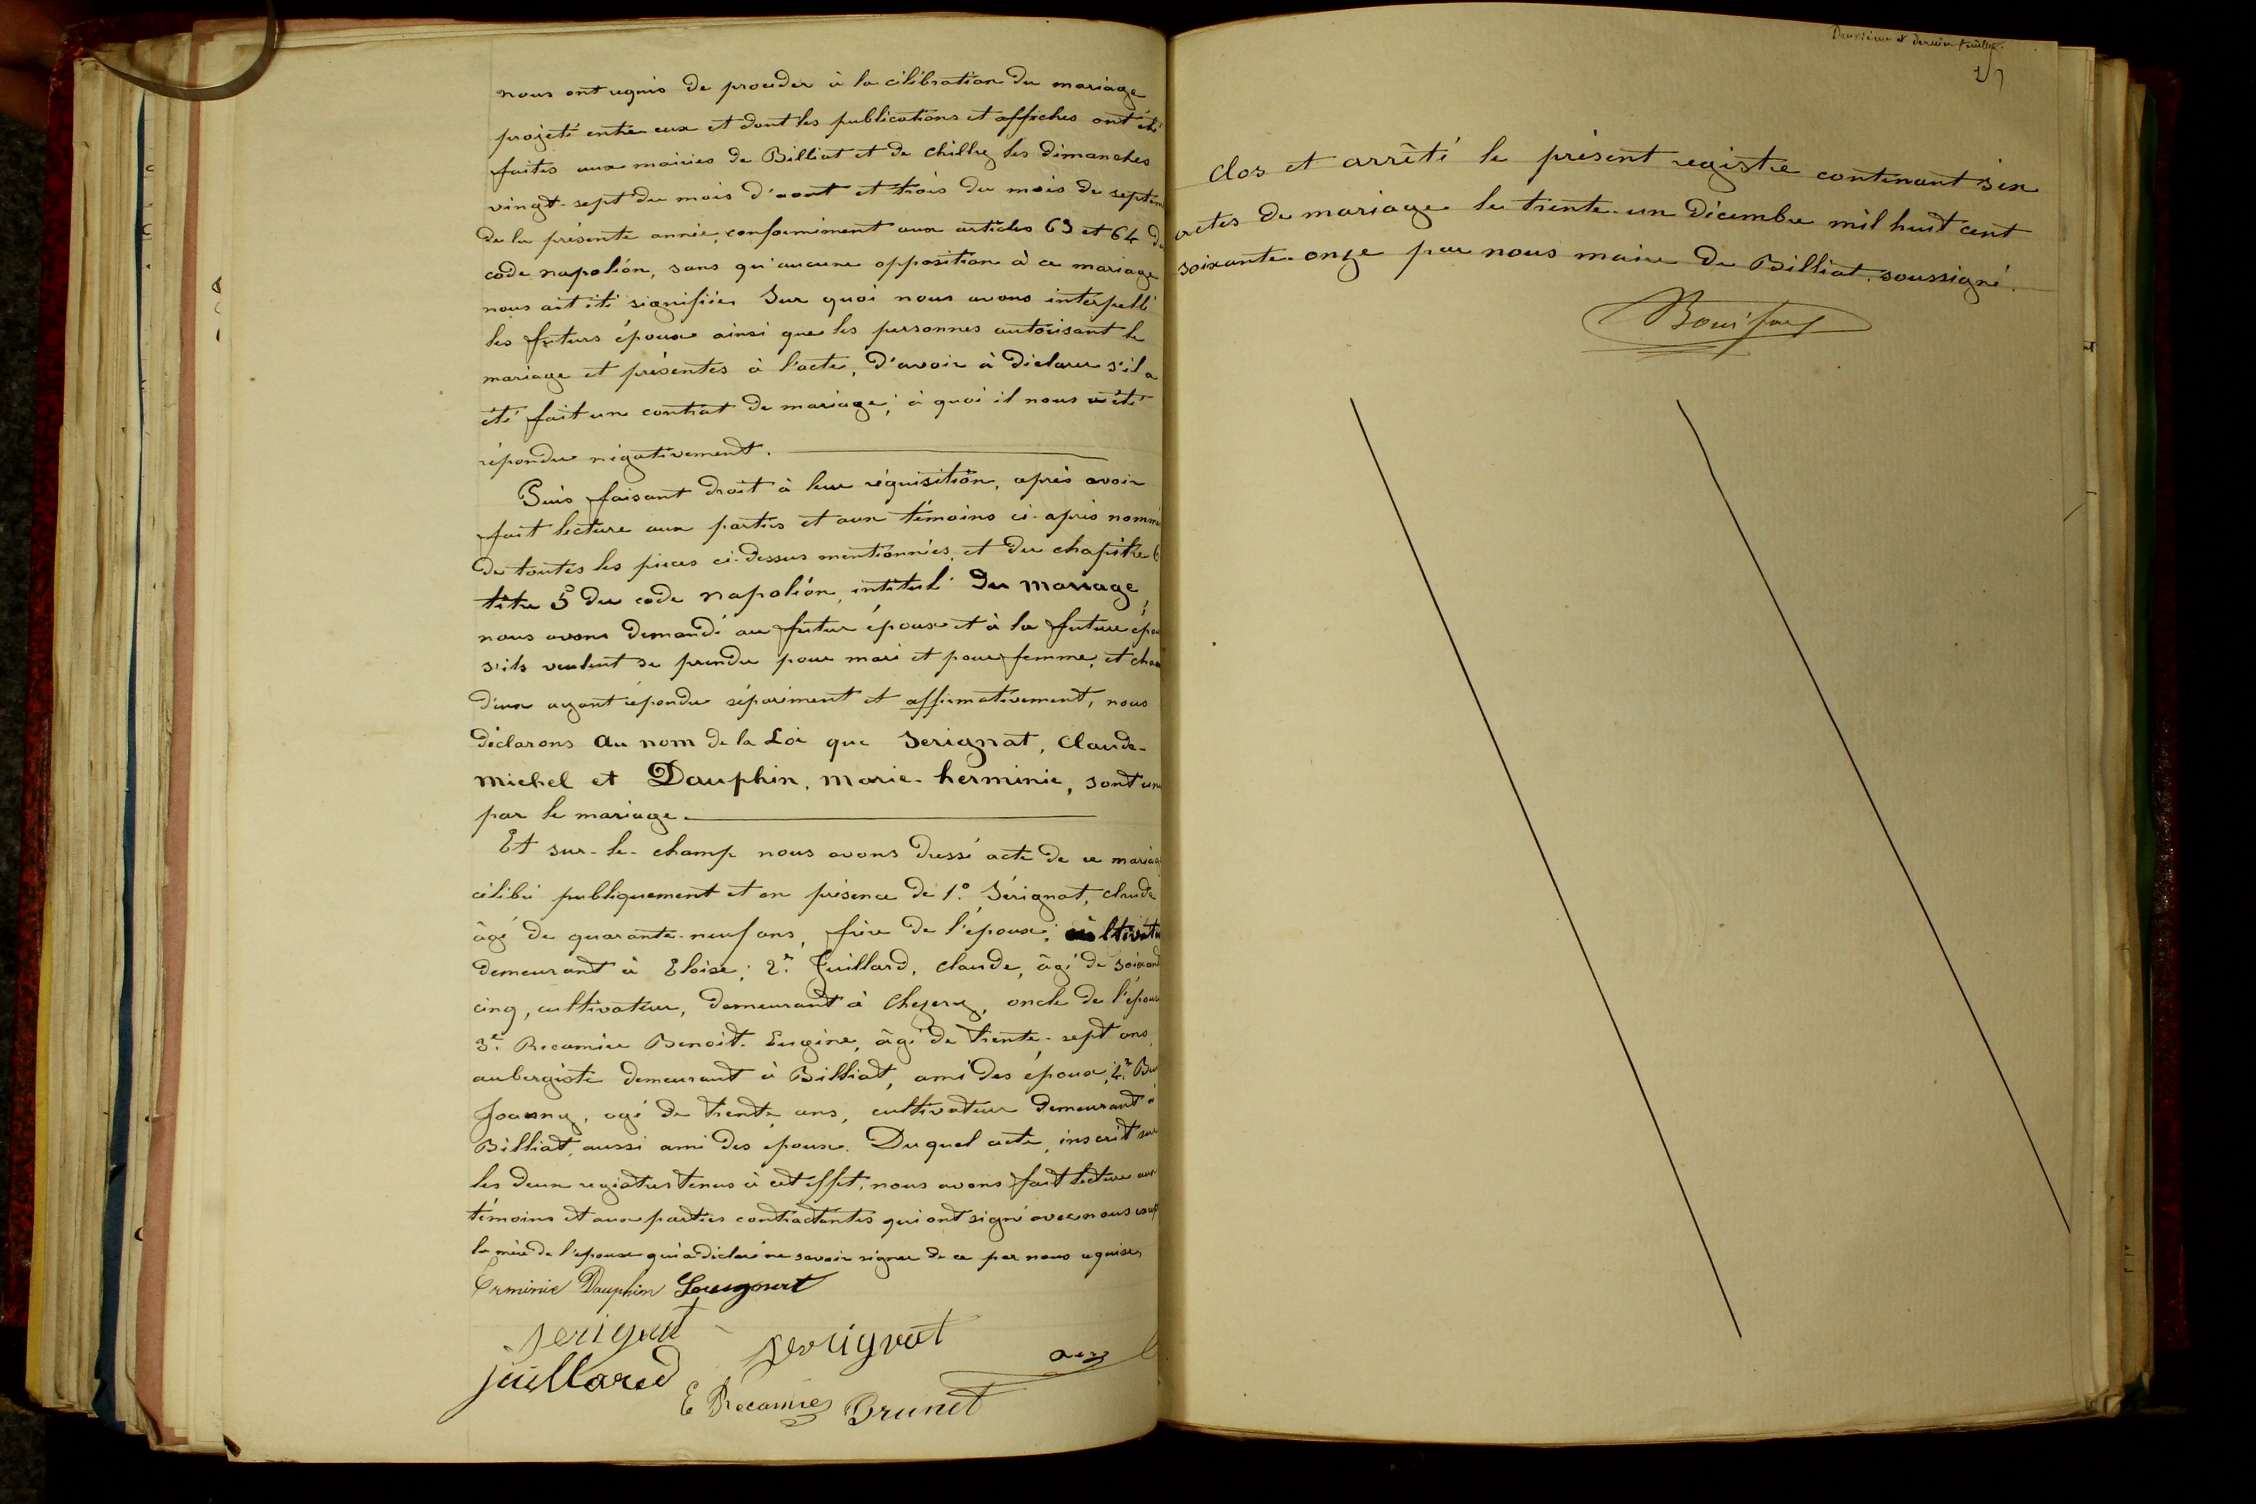 nous ont requis de procéder à la célébration du mariage
projeté entre eux et dont les publications et affiches ont été
faites aux mairies de Billiat et de Chilley les dimanches
vingt-sept du mois d'aout et trois du mois de septem
de la présente année, conformément aux articles 63 et 64 du
code napoléon, sans qu'aucune opposition à ce mariage
nous ait été signifiée. Sur quoi nous avons interpellé
les futurs époux ainsi que les personnes autorisant le
mariage et présentes à l'acte, d'avoir à déclarer s'il a
été fait un contrat de mariage; à quoi il nous a été
répondu négativement.
Puis faisant droit à leur réquisition, après avoir
fait lecture aux parties et aux témoins ci-après nommé
de toutes les pièces ci-dessus mentionnées, et du chapitre 6
titre 5 du code napoléon, intitulé Du mariage,
nous avons demandé au futur époux et à la future épou
s'ils veulent se prendre pour mari et pour femme, et chac
d'eux ayant répondu séparément et affirmativement, nous
déclarons au nom de la Loi que Serignat, Claude-
michel et Dauphin, marie-herminie, sont uni
par le mariage.
Et sur-le-champ nous avons dressé acte de ce mariage
célébré publiquement et en présence de 1° Sérignat, claude
âgé de quarante-neuf ans, frère de l'époux, cultivateu
demeurant à Eloise; 2e Juillard, claude, âgé de soixant
cinq, cultivateur, demeurant à Chezery, oncle de l'époux
3e Recamier Benoit-Eugène, âgé de trente-sept ans,
aubergiste demeurant à Billiat, ami des époux; 4e Bru
Joanny, agé de trente ans, cultivateur demeurant à
Billiat, aussi ami des époux. Duquel acte, inscrit sur
les deux registres tenus à cet effet, nous avons fait lecture aux
témoins et aux parties contractantes qui ont signé avec nous sauf
la mère de l'époux qui a déclaré ne savoir signer de ce par nous requise,
Erminie Dauphin Serignat
serignat serignat
juillared
E Recamier Brunet
Deuxième et dernier feuillet.
Clos et arrêté le présent registre contenant six
actes de mariage le trente-un décembre mil huit cent
soixante-onze par nous maire de Billiat, soussigné.